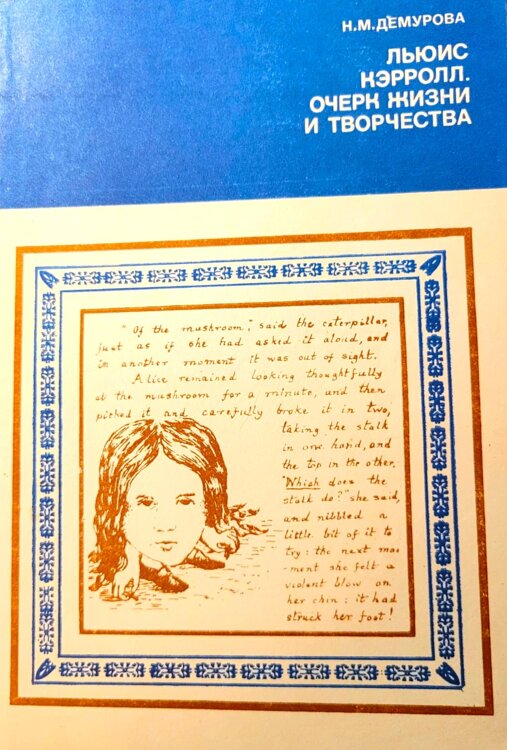 Н.М.ДЕМУРОВА
ЛЬЮИС
КЭРРОЛЛ.
ОЧЕРК ЖИЗНИ
И ТВОРЧЕСТВА
"Of the mushroom," said the caterpillar,
just as if she had asked it aloud, and
in another moment it was out of sight.
Alice remained looking thoughtfully
at the mushroom for a minute, and then
picked it and carefully broke it in two,
taking the stalk
in one hand, and
the top in the other.
"Which does the
stalk do?" she said,
and nibbled a
little bit of it to
try: the next mo-
ment she felt a
violent blow on
her chin: it had
struck her foot!